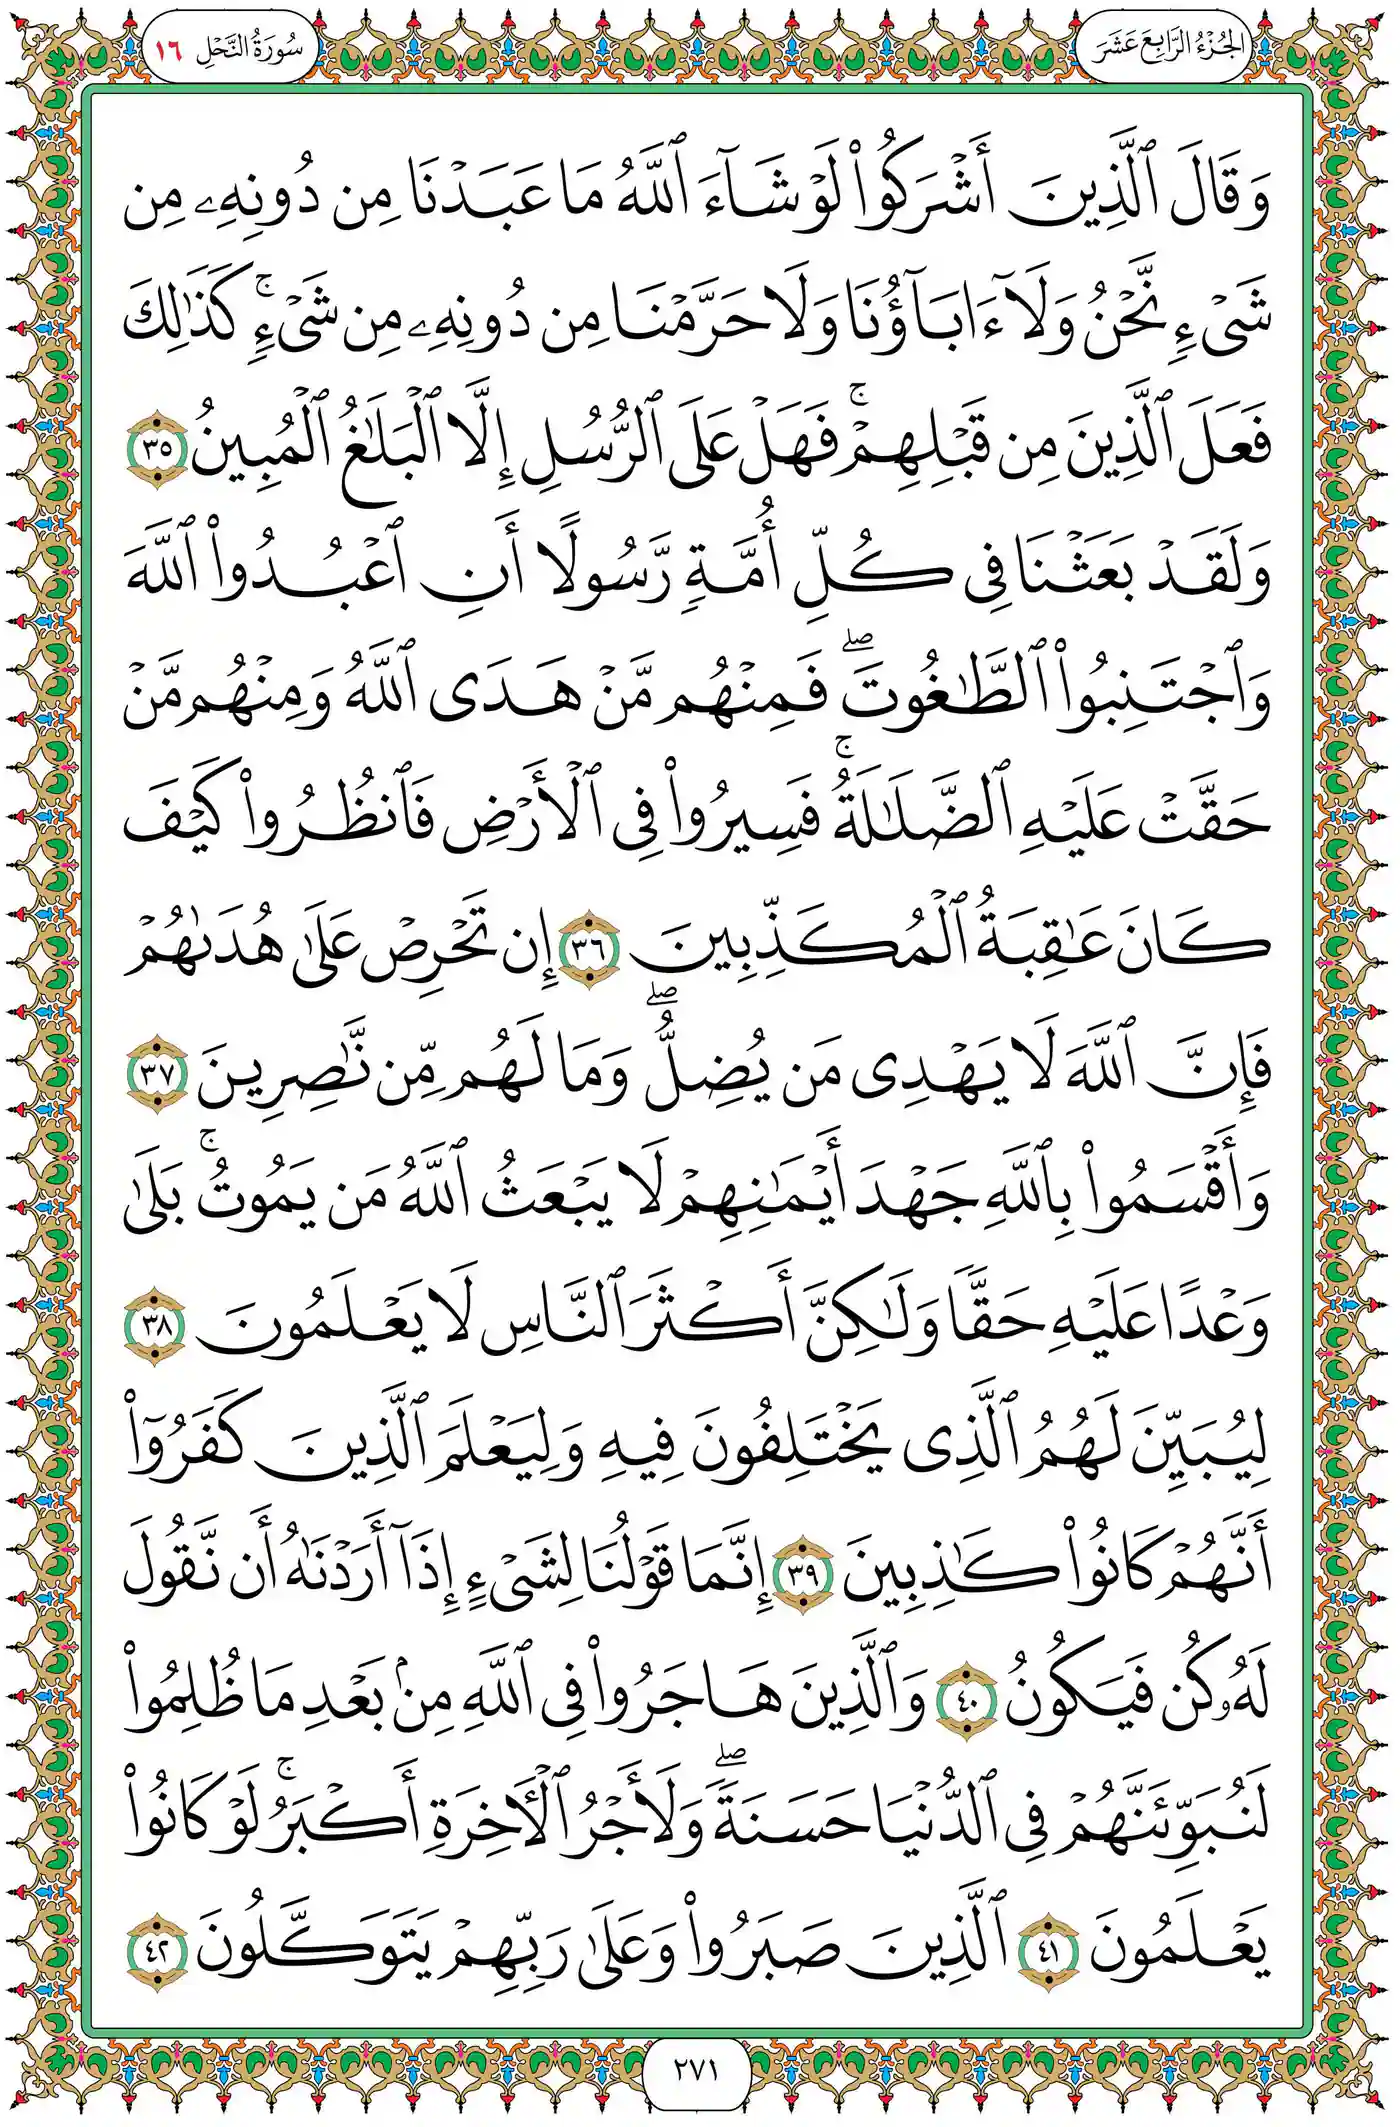 الجُزْءُ الرَّابِعَ عَشَرَ
سُورَةُ النَّحْلِ ١٦
وَقَالَ ٱلَّذِينَ أَشْرَكُوا۟ لَوْ شَآءَ ٱللَّهُ مَا عَبَدْنَا مِن دُونِهِۦ مِن
شَىْءٍ نَّحْنُ وَلَآ ءَابَآؤُنَا وَلَا حَرَّمْنَا مِن دُونِهِۦ مِن شَىْءٍ ۚ كَذَٰلِكَ
فَعَلَ ٱلَّذِينَ مِن قَبْلِهِمْ ۚ فَهَلْ عَلَى ٱلرُّسُلِ إِلَّا ٱلْبَلَٰغُ ٱلْمُبِينُ ٣٥
وَلَقَدْ بَعَثْنَا فِى كُلِّ أُمَّةٍ رَّسُولًا أَنِ ٱعْبُدُوا۟ ٱللَّهَ
وَٱجْتَنِبُوا۟ ٱلطَّٰغُوتَ ۖ فَمِنْهُم مَّنْ هَدَى ٱللَّهُ وَمِنْهُم مَّنْ
حَقَّتْ عَلَيْهِ ٱلضَّلَٰلَةُ ۚ فَسِيرُوا۟ فِى ٱلْأَرْضِ فَٱنظُرُوا۟ كَيْفَ
كَانَ عَٰقِبَةُ ٱلْمُكَذِّبِينَ ٣٦ إِن تَحْرِصْ عَلَىٰ هُدَىٰهُمْ
فَإِنَّ ٱللَّهَ لَا يَهْدِى مَن يُضِلُّ ۖ وَمَا لَهُم مِّن نَّٰصِرِينَ ٣٧
وَأَقْسَمُوا۟ بِٱللَّهِ جَهْدَ أَيْمَٰنِهِمْ لَا يَبْعَثُ ٱللَّهُ مَن يَمُوتُ ۚ بَلَىٰ
وَعْدًا عَلَيْهِ حَقًّا وَلَٰكِنَّ أَكْثَرَ ٱلنَّاسِ لَا يَعْلَمُونَ ٣٨
لِيُبَيِّنَ لَهُمُ ٱلَّذِى يَخْتَلِفُونَ فِيهِ وَلِيَعْلَمَ ٱلَّذِينَ كَفَرُوٓا۟
أَنَّهُمْ كَانُوا۟ كَٰذِبِينَ ٣٩ إِنَّمَا قَوْلُنَا لِشَىْءٍ إِذَآ أَرَدْنَٰهُ أَن نَّقُولَ
لَهُۥ كُن فَيَكُونُ ٤٠ وَٱلَّذِينَ هَاجَرُوا۟ فِى ٱللَّهِ مِنۢ بَعْدِ مَا ظُلِمُوا۟
لَنُبَوِّئَنَّهُمْ فِى ٱلدُّنْيَا حَسَنَةً ۖ وَلَأَجْرُ ٱلْءَاخِرَةِ أَكْبَرُ ۚ لَوْ كَانُوا۟
يَعْلَمُونَ ٤١ ٱلَّذِينَ صَبَرُوا۟ وَعَلَىٰ رَبِّهِمْ يَتَوَكَّلُونَ ٤٢
٢٧١